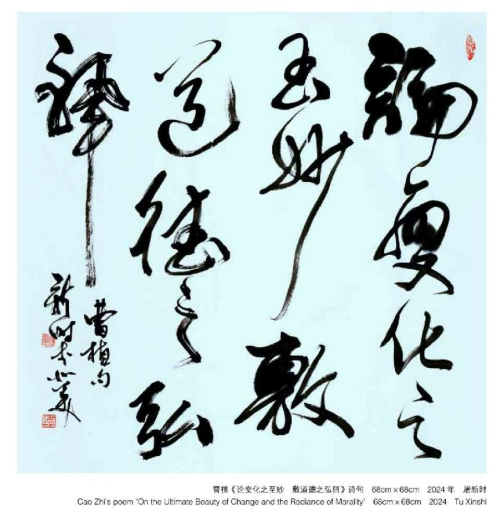 論變化之
至妙敷
道德之弘
麗
曹植句
新时 北美
曹植《论变化之至妙 敷道德之弘丽》诗句 68cm×68cm 2024年 屠新时
Cao Zhi's poem "On the Ultimate Beauty of Change and the Radiance of Morality" 68cm×68cm 2024 Tu Xinshi